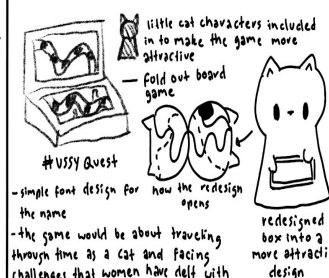 little cat characters included
in to make the game more
attractive
— fold out board
game
#USSY QUEST
- simple font design for
the name
- the game would be about traveling
through time as a cat and facing
challenges that women have delt with
how the redesign
opens
redesigned
box into a
more attracti
design